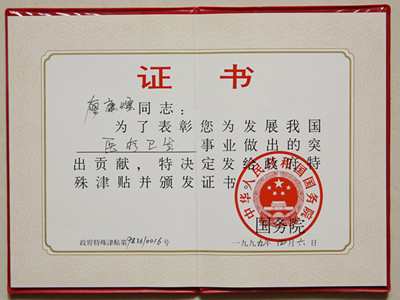 证书
廖康煌同志：
为了表彰您为发展我国
医疗卫生事业做出的突
出贡献，特决定发给政府特
殊津贴并颁发证书
中华人民共和国国务院
国务院
政府特殊津贴第9836/0016号
一九九九年四月六日